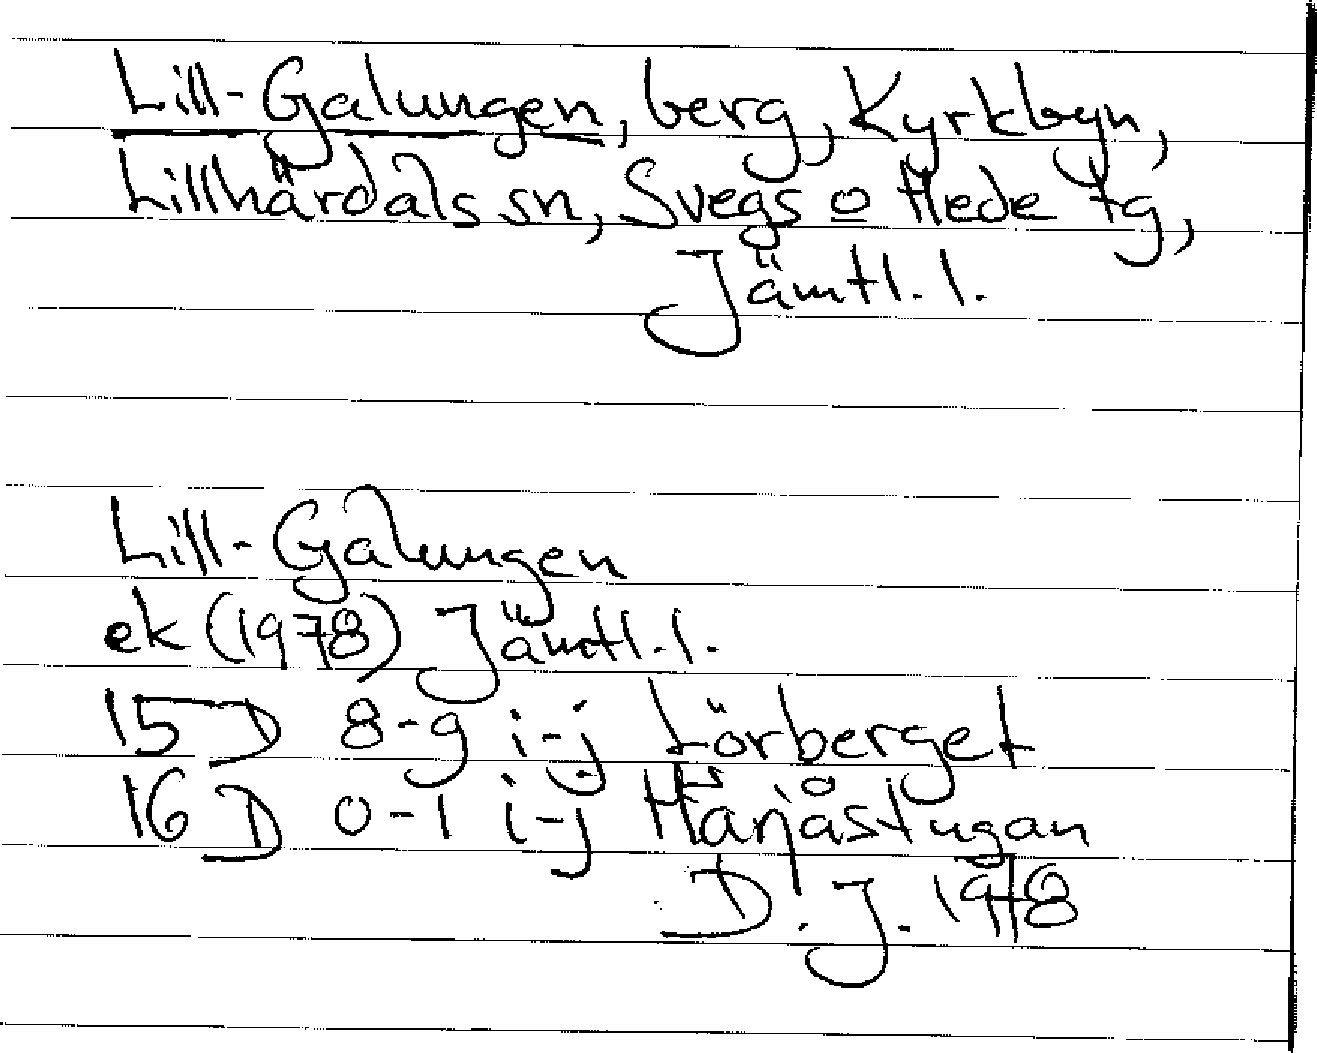 Lill-Galungen, berg, Kyrkbyn,
Lillhärdals sn, Svegs o Hede tg,
Jämtl. l.
Lill-Galungen
ek (1978) Jämtl. l.
15 D 8-9 i-j Lörberget
16 D 0-1 i-j Härjåstugan
D. J. 1978